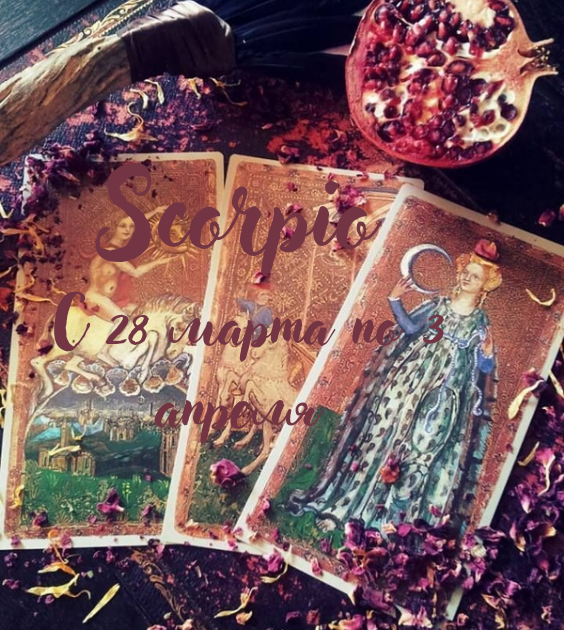 Scorpio
С 28 марта по 3
апреля